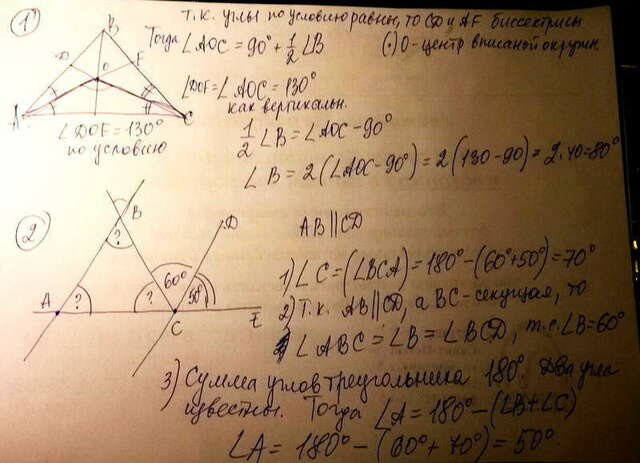 1)
Т.к. углы по условию равны, то CD и AF биссектрисы
Тогда ∠AOC = 90° + 1/2 ∠B (·) O - центр вписаной окружн.
∠DOF = ∠AOC = 130°
как вертикальн.
1/2 ∠B = ∠AOC - 90°
∠B = 2(∠AOC - 90°) = 2(130 - 90) = 2·40 = 80°
B
D
F
O
A
C
∠DOF = 130°
по условию
2)
AB || CD
B
D
?
60°
A
?
?
50°
C
E
1) ∠C = (∠BCA) = 180° - (60° + 50°) = 70°
2) Т.к. AB || CD, а BC - секущая, то
∠ABC = ∠B = ∠BCD, т.е. ∠B = 60°
3) Сумма углов треугольника 180°. Два угла
известны. Тогда ∠A = 180° - (∠B + ∠C)
∠A = 180° - (60° + 70°) = 50°